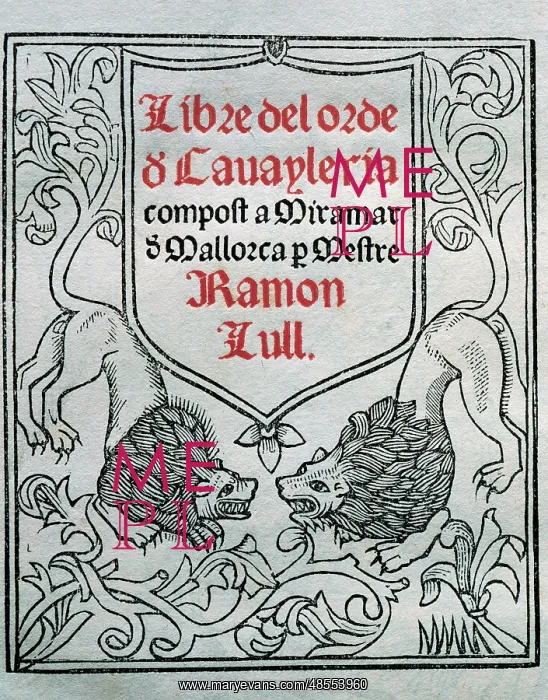 Libre del orde
δ Cauayleria
compost a Miramar
δ Mallorca p Mestre
Ramon
Lull.
ME
PL
ME
PL
www.maryevans.com/48553960